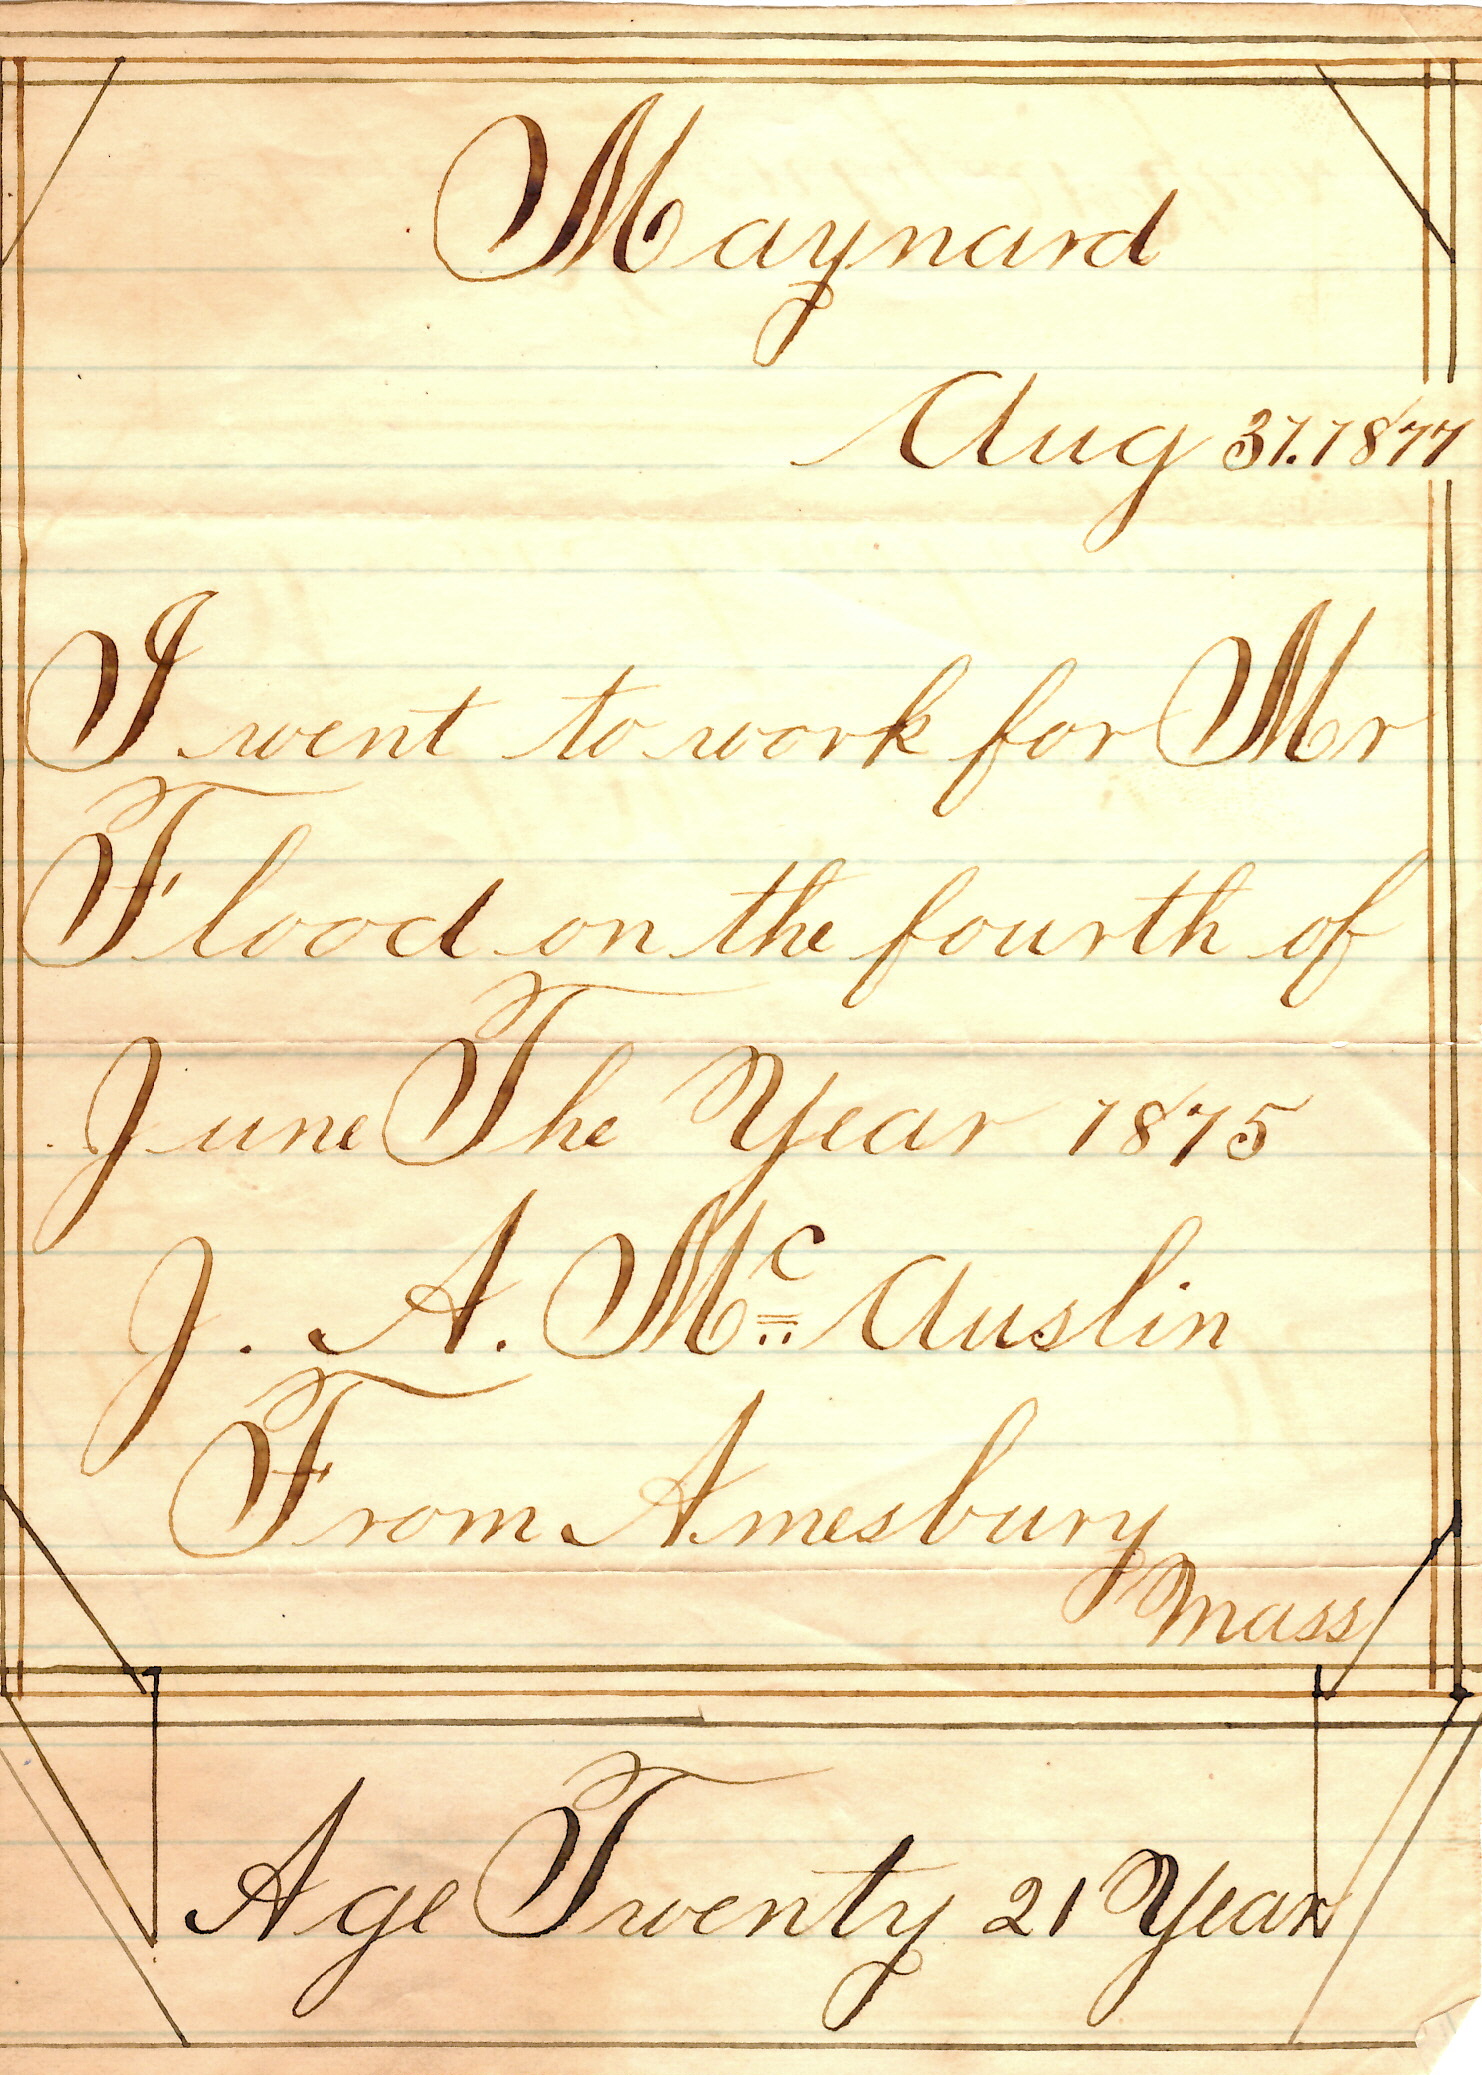 Maynard
Aug 31. 1877
I went to work for Mr
Flood on the fourth of
June The Year 1875
J. A. Mc Auslin
From Amesbury
Mass
Age Twenty 21 Year